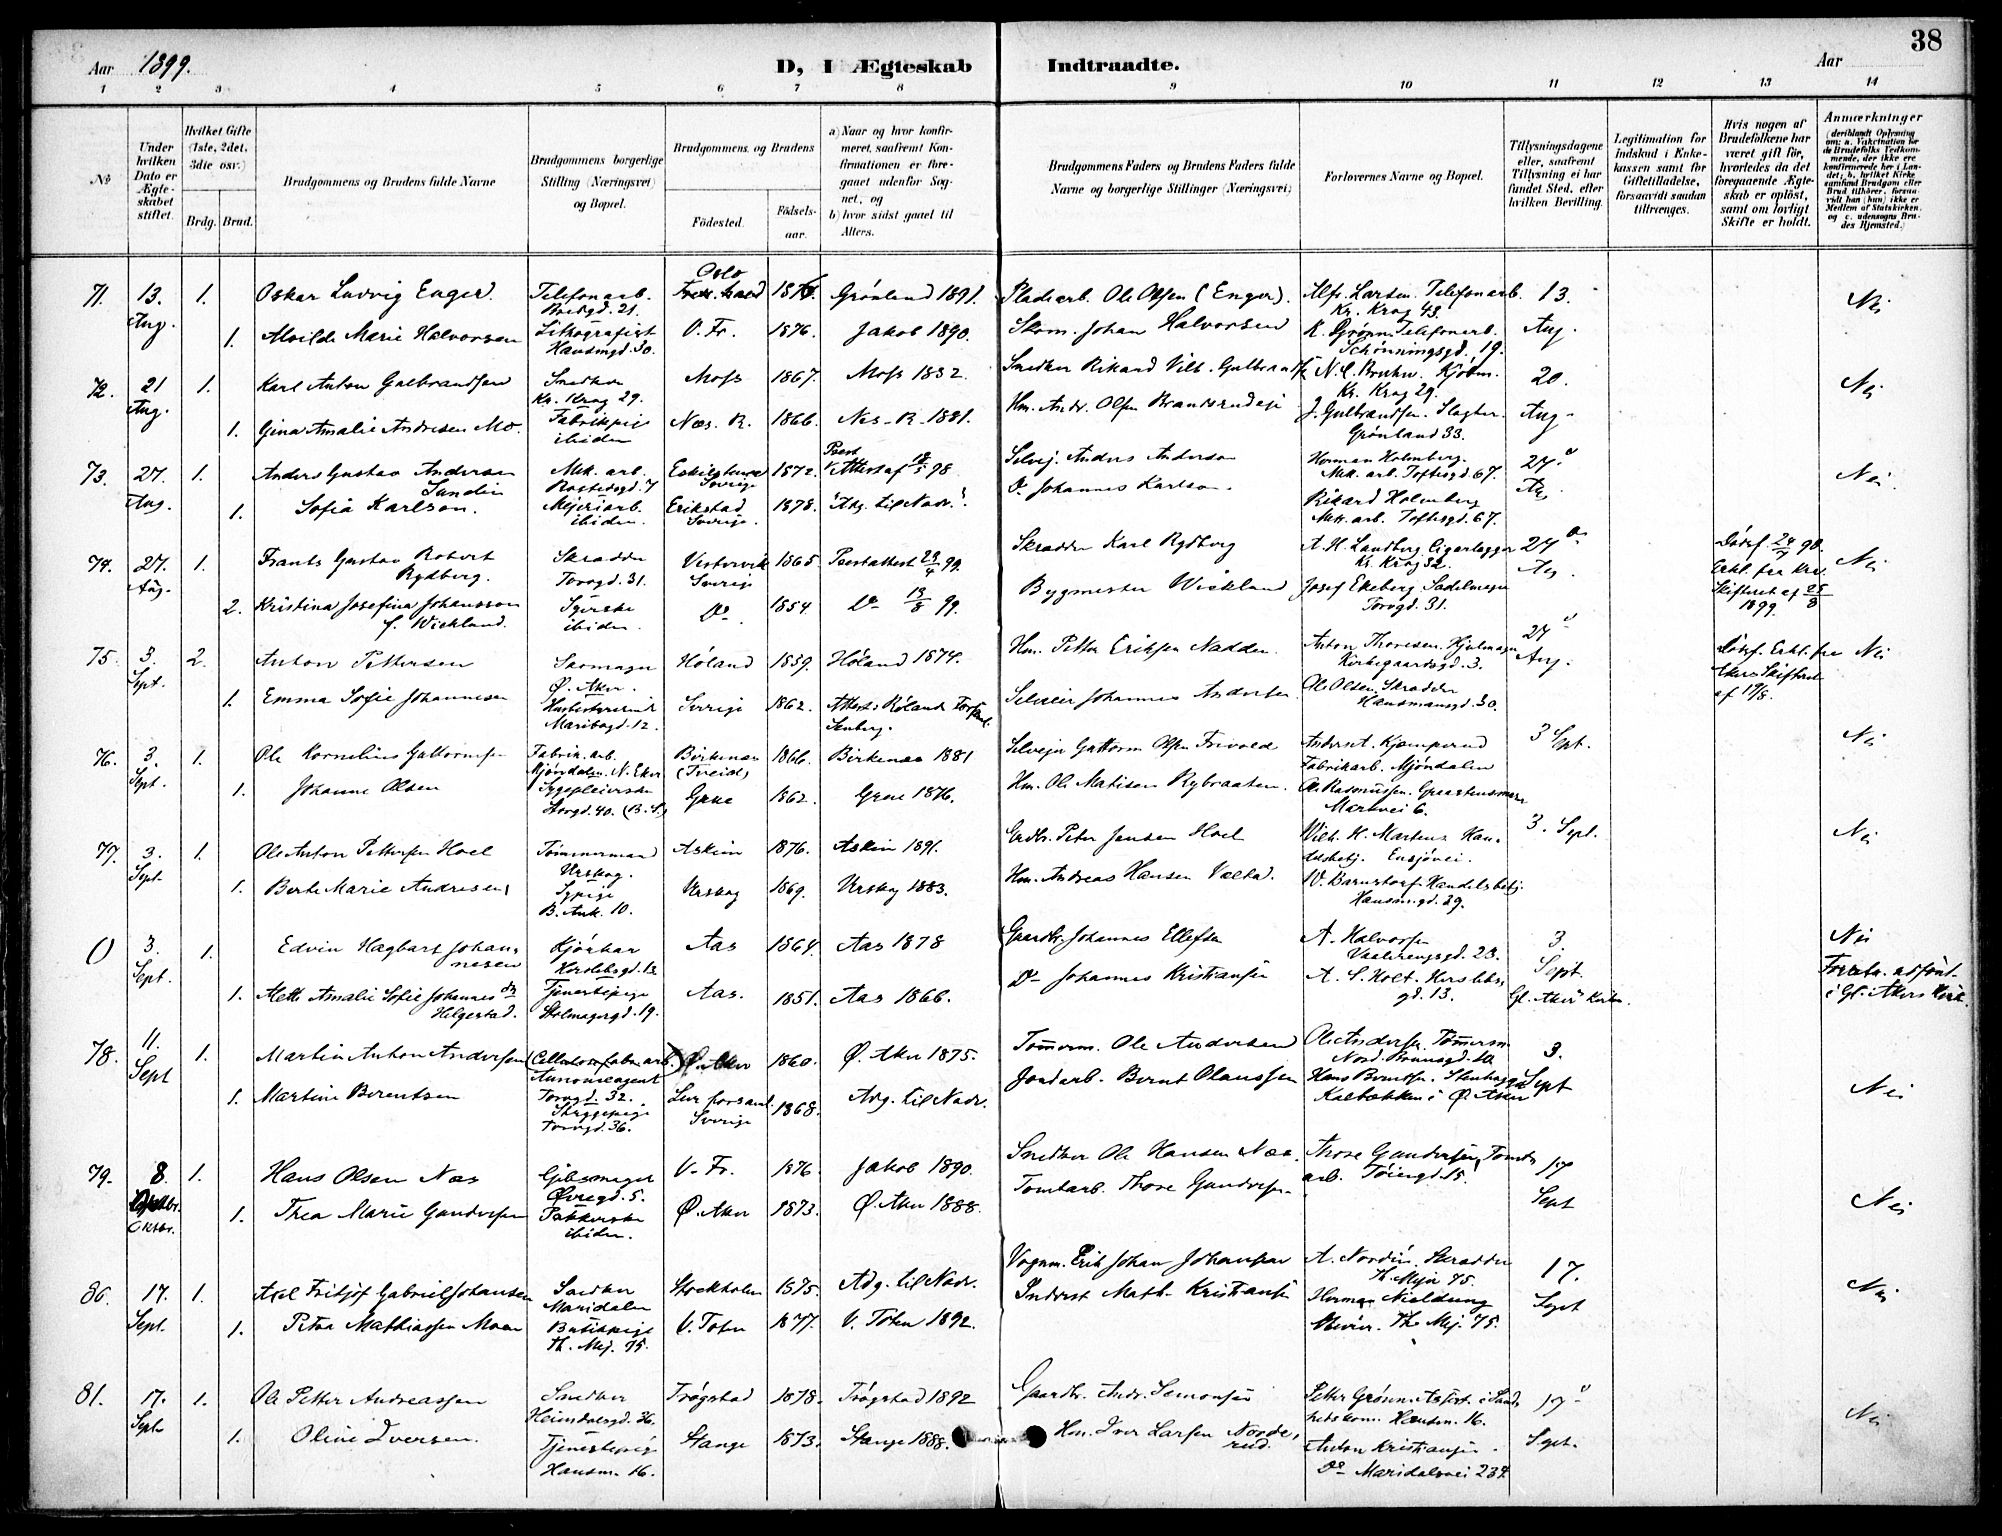 Aar 1899.
D, I Ægteskab Indtraadte.
Aar
38
1 2 3 4 5 6 7 8 9 10 11 12 13 14
No
Under hvilken Dato er Ægteskabet stiftet.
Hvilket Gifte (1ste, 2det, 3die osv.)
Brdg. Brud.
Brudgommens og Brudens fulde Navne
Brudgommens borgerlige Stilling (Næringsvei) og Bopæl.
Brudgommens og Brudens
Födested.
Födsels-aar.
a) Naar og hvor konfirmeret, saafremt Konfirmationen er foregaaet udenfor Sognet, og
b) hvor sidst gaaet til Alters.
Brudgommens Faders og Brudens Faders fulde Navne og borgerlige Stillinger (Næringsvei)
Forlovernes Navne og Bopæl.
Tillysningsdagene eller, saafremt Tillysning ei har fundet Sted, efter hvilken Bevilling.
Legitimation for Indskud i Enkekassen samt for Giftetilladelse, forsaavidt saadan tiltrænges.
Hvis nogen af Brudefolkene har været gift för, hvorledes da det foregaaende Ægteskab er oplöst, samt om lovligt Skifte er holdt.
Anmærkninger
(deriblandt Oplysning om: a. Vakcination for de Brudefolks Vedkommende, der ikke ere konfirmerede her i Landet; b. hvilket Kirkesamfund Brudgom eller Brud tilhörer, forsaavidt han (hun) ikke er Medlem af Statskirken, og c. udensogns Brudes Hjemsted.)
71. 13. Aug. 1. Oskar Ludvig Enger. Telefonarb. Bredgd. 21. Oslo 1876. Grönland 1891. Pladsarb. Ole Olsen (Enger). Alfr. Larsen. Telefonarb. Kr. Krag 43. 13. Aug. Nei
1. Alvilde Marie Halvorsen Litografist Hausmgd. 30. V. Fr. 1876. Jakob 1890. Skom. Johan Halvorsen K. Grönn Telefonarb. Schönningsgd. 19.
72. 21 Aug. 1. Karl Anton Gulbrandsen Snedker Kr. Krag 29. Moss 1867. Moss 1882. Snedker Rikard Vilh. Gulbrands. N. C. Bruhn. Kjöbm. Kr. Krag 29. 20. Aug. Nei
1. Gina Amalie Andresen Mo. Fabrikpige ibiden Næs. R. 1866. Nes. R. 1881. Hm. Andr. Olsen J. Gulbrandsen. Slagter. Grönland 33.
73. 27. Aug. 1. Anders Gustav Andersen Sundin Mek. arb. Eskilstuna Sverige 1872. Attest af 18/5 98. Selvej. Anders Anderson Herman Holmberg. Mek. arb. Toftesgd. 67. 27. Aug. Nei
1. Sofia Karlson. Mejeriarb. ibiden. Erikstad Sverige. 1878. "Adg. til Nadv." Do Johannes Karlson. Rikard Holmberg Mek. arb. Toftesgd. 67.
74. 27. Aug. 1. Frants Gustav Robert Rydberg. Skrædder Torvgd. 31. Vestervik Sverige 1865. Prestattest 29/4 99. Skrædder Karl Rydberg A. H. Lundberg Cigarlægger Kr. Krag 32. 27 Aug. Dödsf. 24/7 90. Erkl. fra Kra. Skifteret af 25/8 1899. Nei
2. Kristina Josefina Johansson f. Wickland. Syerske ibiden. Do 1854. Do 13/8 99. Bygmester Wickland Josef Ekeberg Sadelmager Torvgd. 31.
75. 3. Sept. 2. Anton Pettersen Skomager Ø. Aker. Höland 1859. Höland 1874. Hm. Petter Eriksen Nadden. Anton Thoresen. Hjulmager Kirkegaardsgd. 3. 27 Aug. Dödsf. Erkl. fra Akers Skifteret af 19/8. Nei
1. Emma Sofie Johannesen Husbestyrerinde Maribogd. 12. Sverige 1862. Selveier Johannes Andersen Ole Olsen Skrædder Hausmansgd. 30.
76. 3. Sept. 1. Ole Kornelius Guttormsen Fabrik. arb. Mjöndalen. N. Eker Birkenæs (Tveid) 1866. Birkenæs 1881 Selvejer Guttorm Olsen Frivold Anders Kjæmperud Fabrikarb. Mjöndalen 3 Sept. Nei
1. Johanne Olsen Sygepleierske Storgd. 40. (B. S.) Grue 1862. Grue 1876. Hm. Ole Matisen Rybraaten. Ole Rasmussen. Markvei 6.
77. 3. Sept. 1. Ole Anton Pettersen Hoel Tömmermand Urskog. Askim 1876. Askim 1891. Grdbr. Peter Jensen Hoel Vilh. H. Martens Handelsbetj. Ensjövei. 3. Sept. Nei
1. Berte Marie Andresen Sypige B. Ank. 10. Urskog 1869. Urskog 1883. Hm. Andreas Hansen W. Barnstorf. Handelsbetj. Hausm. gd. 29.
0 3. Sept. 1. Edvin Hagbart Johannesen Kjörkar Herslebsgd. 13 Aas 1864. Aas 1878 Gaardbr. Johannes Ellefsen A. Halvorsen Vaalerengsgd. 23. 3. Sept. Gl. Aker Kirke. Nei Forretn. udfört i Gl. Akers Kirke.
1. Mette Amalie Sofie Johannesdt Helgestad. Tjenestepige Holmagergd. 19. Aas. 1851. Aas 1866. Do Johannes Kristiansen A. S. Holt. Herslebs gd. 13.
78. 11. Sept 1. Martin Anton Andersen (Cellulosefabr. arb.) Annonceagent Torvgd. 32. Ø. Aker 1860. Ø. Aker 1875. Tömerm. Ole Andersen Ole Andersen. Tömerm. Nord. 3. Sept Nei
1. Martine Berentsen Strygepige Torvgd. 36. Sverige 1868. Adg. til Nadv. Jordarb. Bernt Olaussen Hans Berntsen. Stenhugger Kalbakken i Ø. Aker
79. 8. Oktbr. 1. Hans Olsen Næs Gibsmager Övregd. 5. V. Fr. 1876. Jakob 1890. Snedker Ole Hansen Næs. Thore Gundersen, Tomtearb. Töiengd. 15. 17 Sept Nei
1. Thea Marie Gundersen Pakkerske ibiden. Ø. Aker 1873. Ø. Aker 1888. Tomtarb. Thore Gundersen.
80. 17. Sept. 1. Axel Fritjof Gabriel Johansen Snedker Maridalen Stockholm 1875. Adg. til Nadv. Vognm. Erik Johan Johansson A. Nordin. Skrædder Th. Mejer 75. 17. Sept Nei
1. Petra Mathiassen Moen Butikpige Th. Mej. 75. V. Toten 1877. V. Toten 1892. Inderst Math. Kristians. Herman Nielsung Th. Mej. 75.
81. 17. Sept. 1. Ole Petter Andreassen Snedker Heimdalsgd. 36. Trögstad 1878. Trögstad 1892 Gaardbr. Andr. Simonsen Petter Grönn Assist. i Sundhedskom. Hausm. 16. 17 Sept. Nei
1. Oline Iversen. Tjenestepige Hausm. 16. Stange 1873. Stange 1888. Hm. Iver Larsen Norderud. Anton Kristiansen. Do Maridalsvei 234.